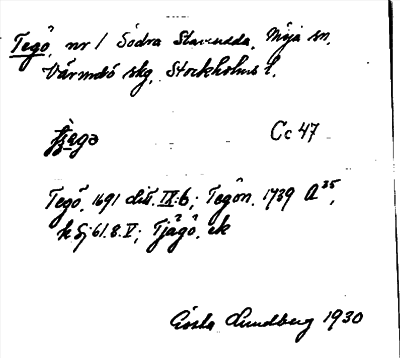 Tegö, nr 1 Södra Stavsudda, Möja sn,
Värmdö skg, Stockholms l.
Cc 47
Tegö, 1691 dit. IX:6; Tegön, 1739 A 35,
k Sj 61.8.V; Tjägö, ek
Gösta Lundberg 1930